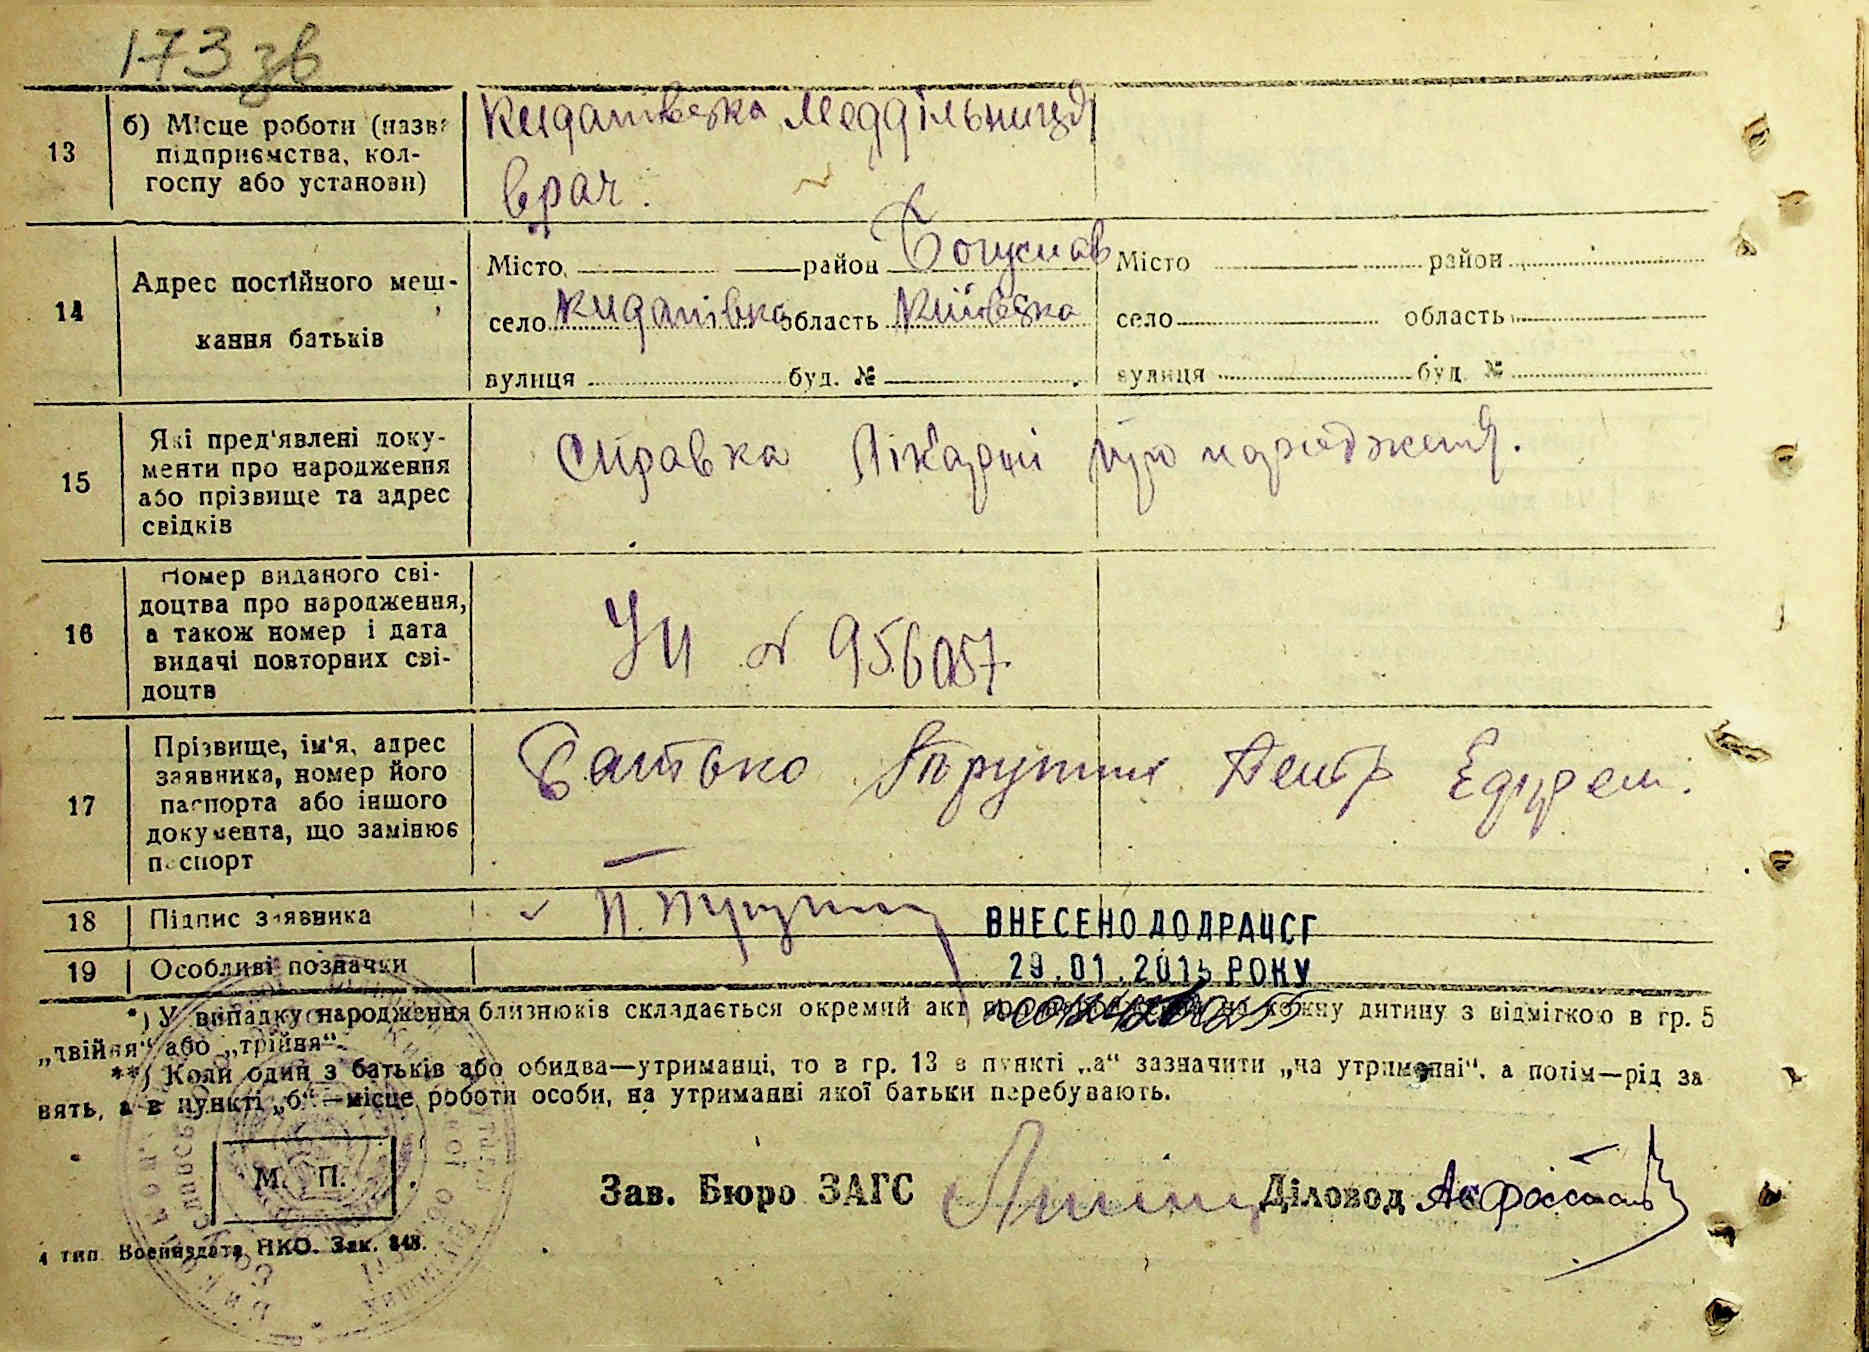 173 зв
13
б) Місце роботи (назва
підприємства, кол-
госпу або установи)
Кидатівська Меддільниця
врач.
14
Адрес постійного меш-
кання батьків
Місто район Богуслав
село Кидатівка область Київська
вулиця буд. №
Місто район
село область
вулиця буд. №
15
Які пред'явлені доку-
менти про народження
або прізвище та адрес
свідків
Справка Лікарні про народження.
16
Номер виданого сві-
доцтва про народження,
а також номер і дата
видачі повторних сві-
доцтв
УИ № 956057.
17
Прізвище, ім'я, адрес
заявника, номер його
паспорта або іншого
документа, що замінює
паспорт
Батько Петр
18
Підпис заявника
ВНЕСЕНО ДО ДРАЦСГ
19
Особливі позначки
29.01.2015 РОКУ
*) У випадку народження близнюків складається окремий акт про на кожну дитину з відміткою в гр. 5
„двійня“ або „трійня“.
**) Коли один з батьків або обидва—утриманці, то в гр. 13 в пункті „а“ зазначити „на утриманні“, а потім—рід за
нять, а в пункті „б“—місце роботи особи, на утриманні якої батьки перебувають.
М. П.
Зав. Бюро ЗАГС
Діловод
4 тип. Воениздата НКО. Зак. 848.